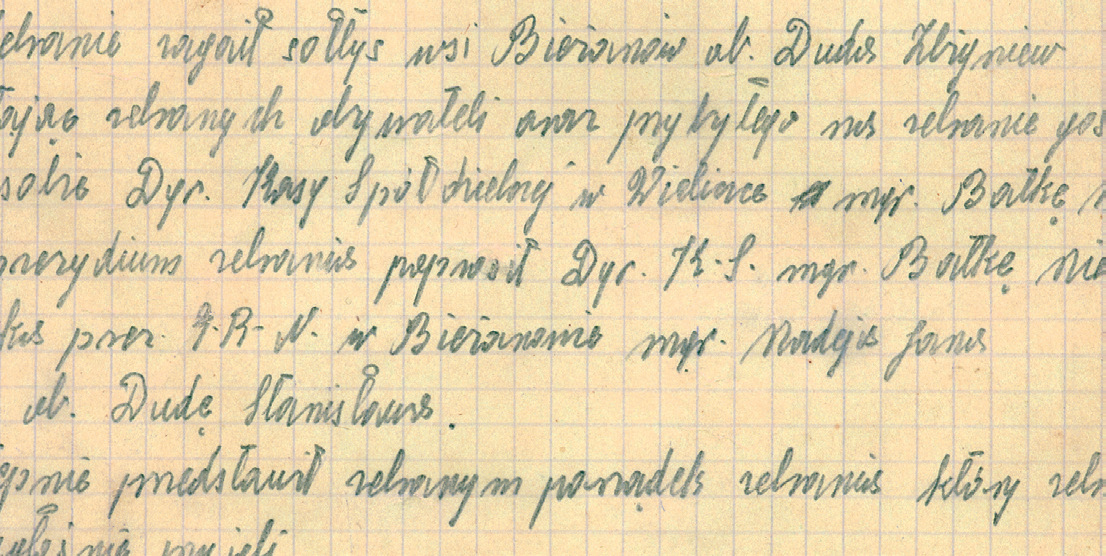 ebranie zagaił sołtys wsi Bieżanów ob. Duda Zbigniew
tając zebranych obywateli oraz przybyłego na zebranie gos
sobie Dyr. Kasy Spółdzielnej w Wieliczce mgr. Bałkę
prezydium zebrania poprosił Dyr. K.S. mgr. Bałkę
ka prez. G.R.N. w Bieżanowie mgr. Jana
ob. Dudę Stanisława.
ępnie przedstawił zebranym porządek zebrania który zebr
ślnie przyjęli